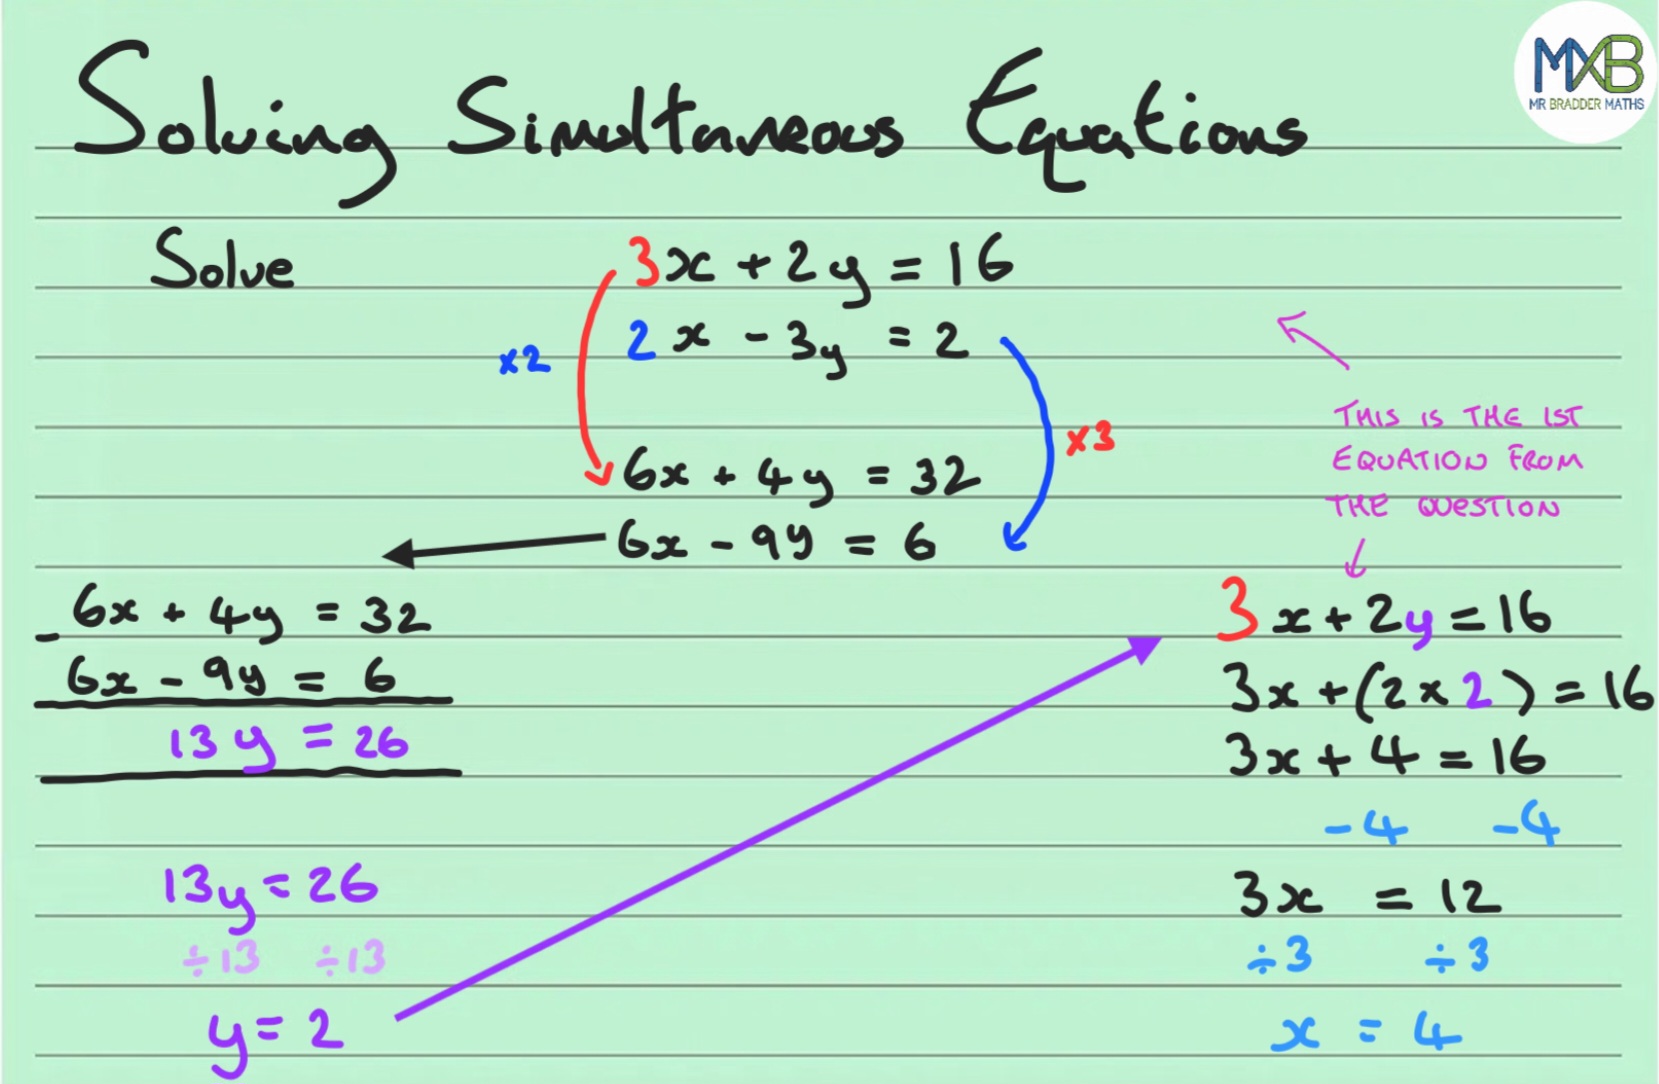 Solving Simultaneous Equations
MXB
MR BRADDER MATHS
Solve
3x + 2y = 16
2x - 3y = 2
×2
×3
6x + 4y = 32
6x - 9y = 6
THIS IS THE 1ST
EQUATION FROM
THE QUESTION
-
6x + 4y = 32
6x - 9y = 6
13y = 26
13y = 26
÷13 ÷13
y = 2
3x + 2y = 16
3x + (2 × 2) = 16
3x + 4 = 16
-4 -4
3x = 12
÷3 ÷3
x = 4